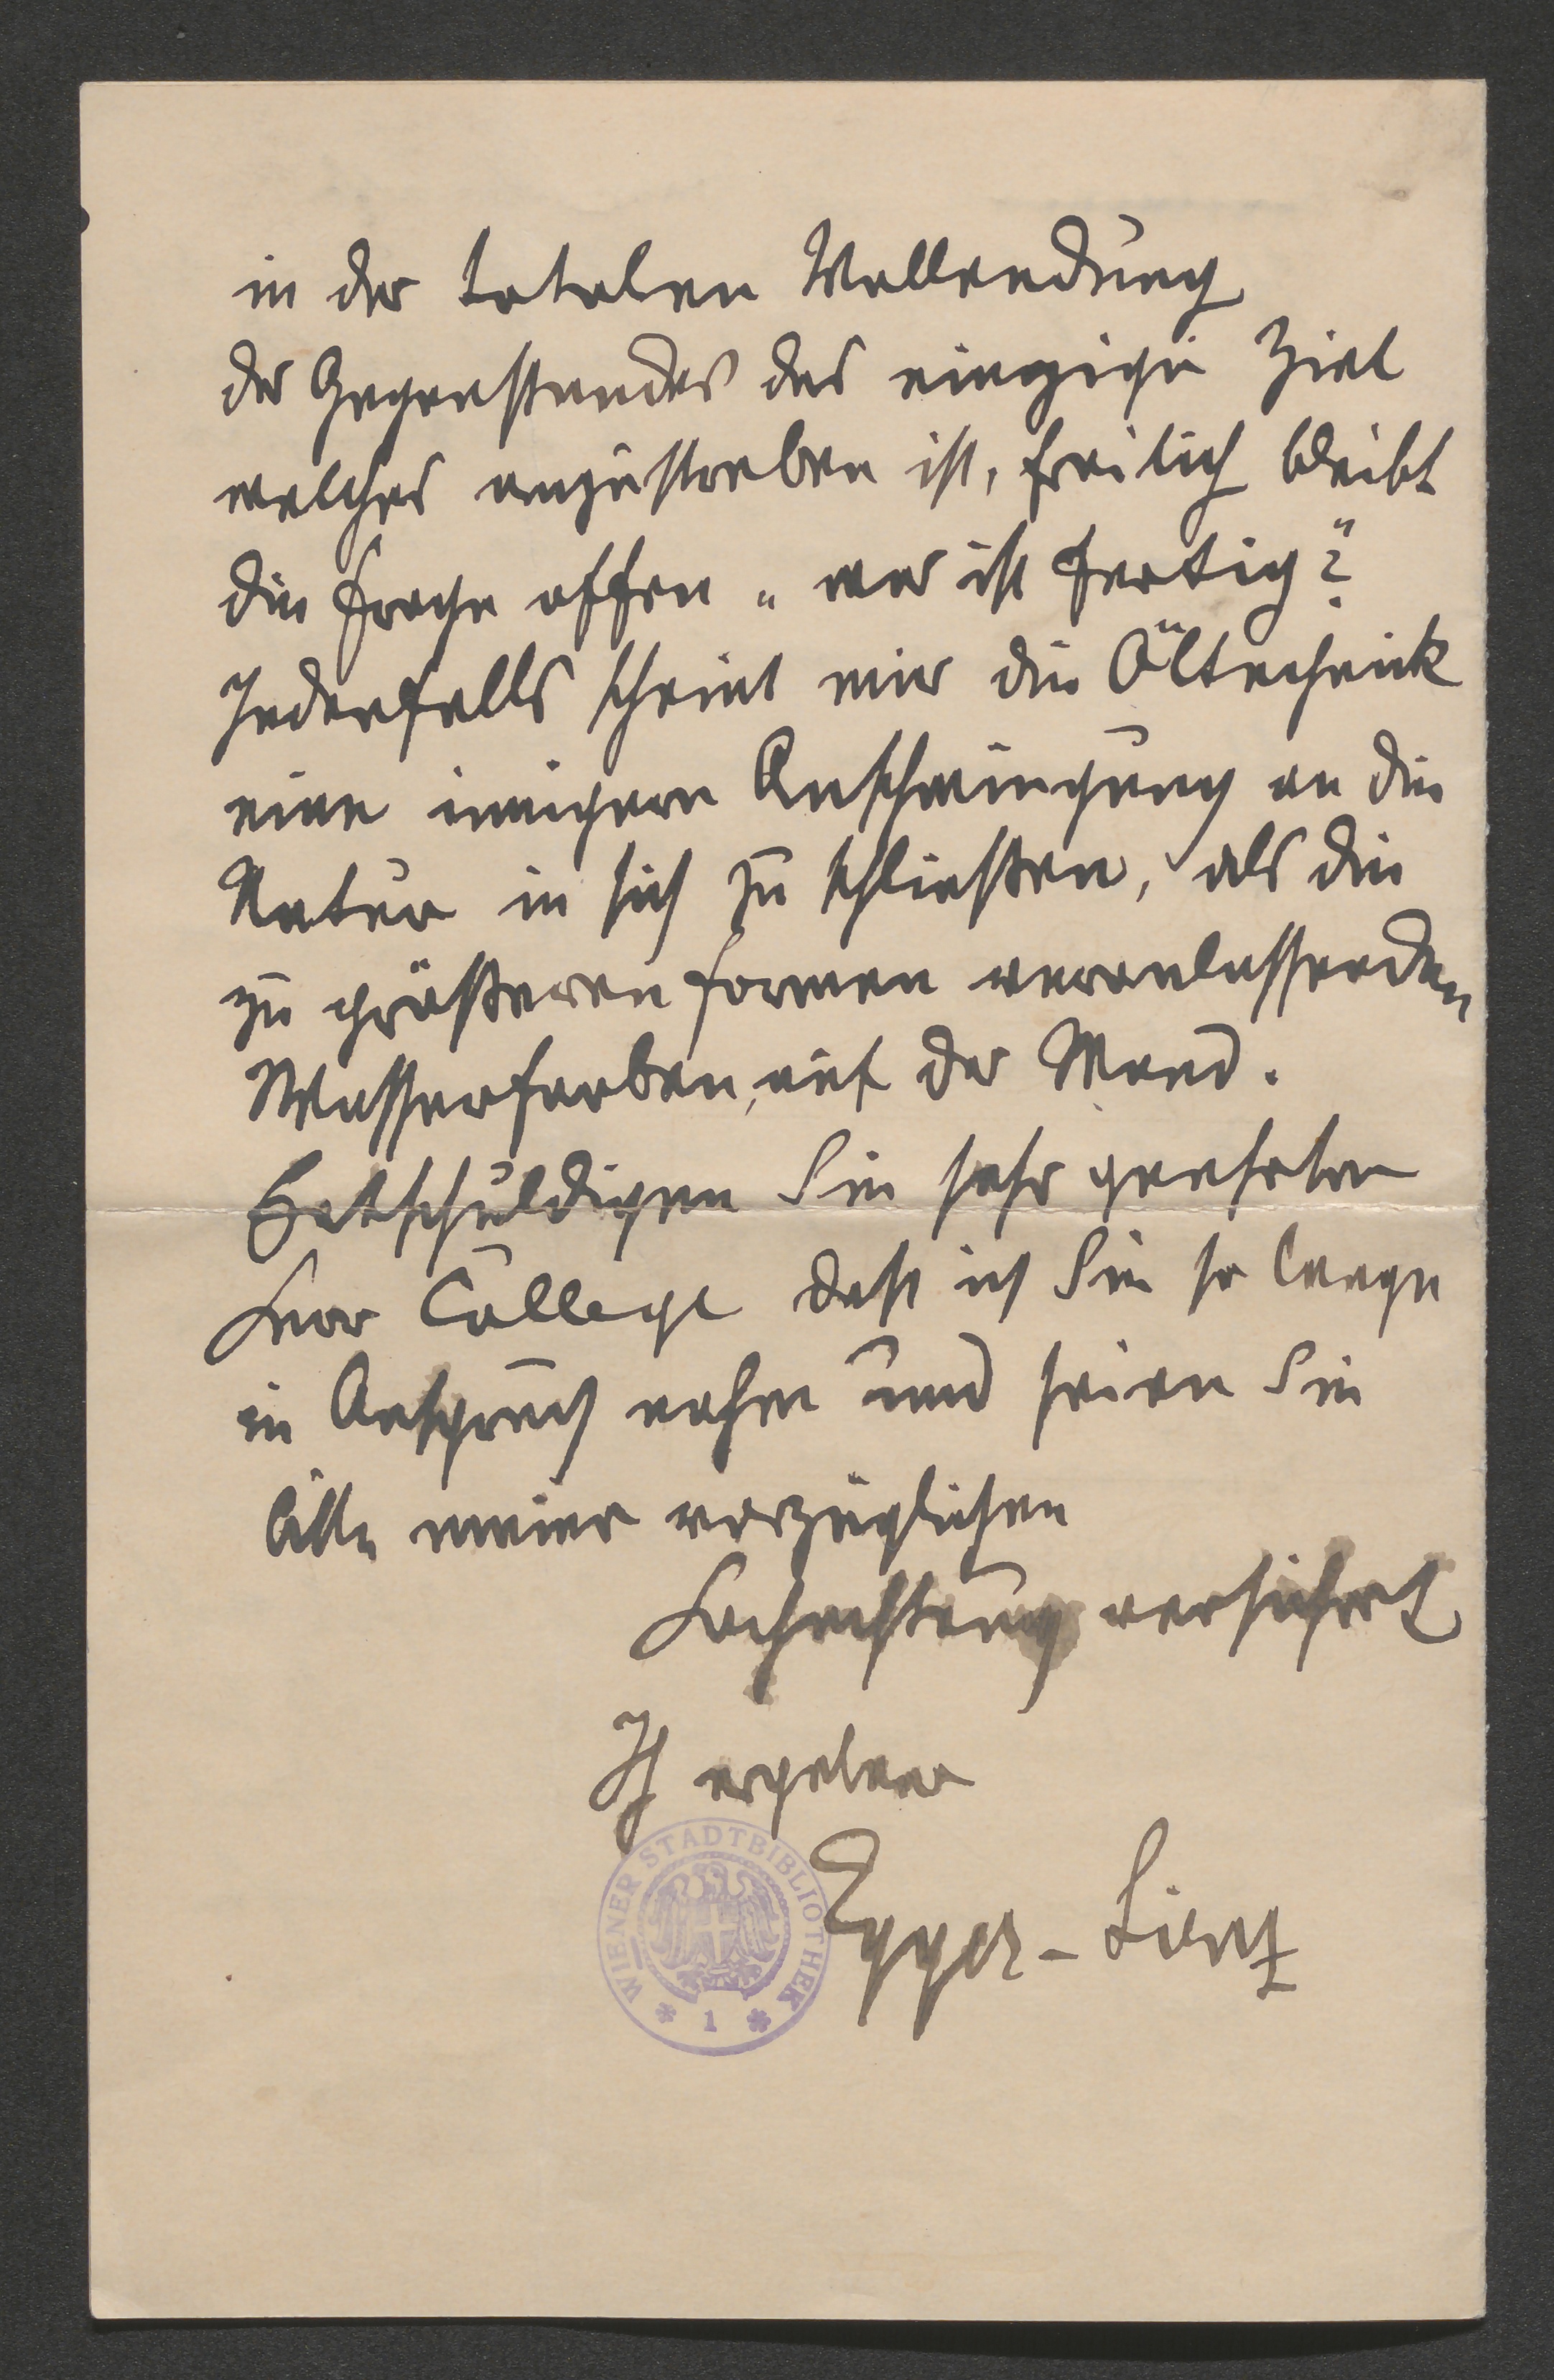 in der totalen Vollendung
des Gegenstandes das einzige Ziel
welches anzustreben ist, freilich bleibt
die Frage offen „wer ist fertig?“
Jedenfalls scheint mir die Öltechnik
eine innigere Anschmiegung an die
Natur in sich zu schließen, als die
zu größeren Formen veranlassenden
Wasserfarben, auf der Wand.
Entschuldigen Sie sehr geehrter
Herr College daß ich Sie so lange
in Anspruch nahm und seien Sie
bitte meiner vorzüglichen
Hochachtung versichert
Ihr ergebener
Egger-Lienz
WIENER STADTBIBLIOTHEK
* 1 *